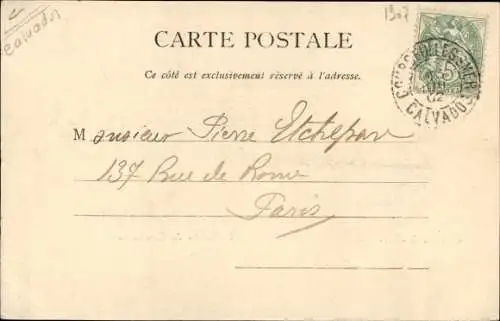 Calvados
1902
CARTE POSTALE
Ce côté est exclusivement réservé à l'adresse.
COURSEULLES-S-MER
02
CALVADOS
Monsieur Pierre Etchepar
137 Rue de Rome
Paris